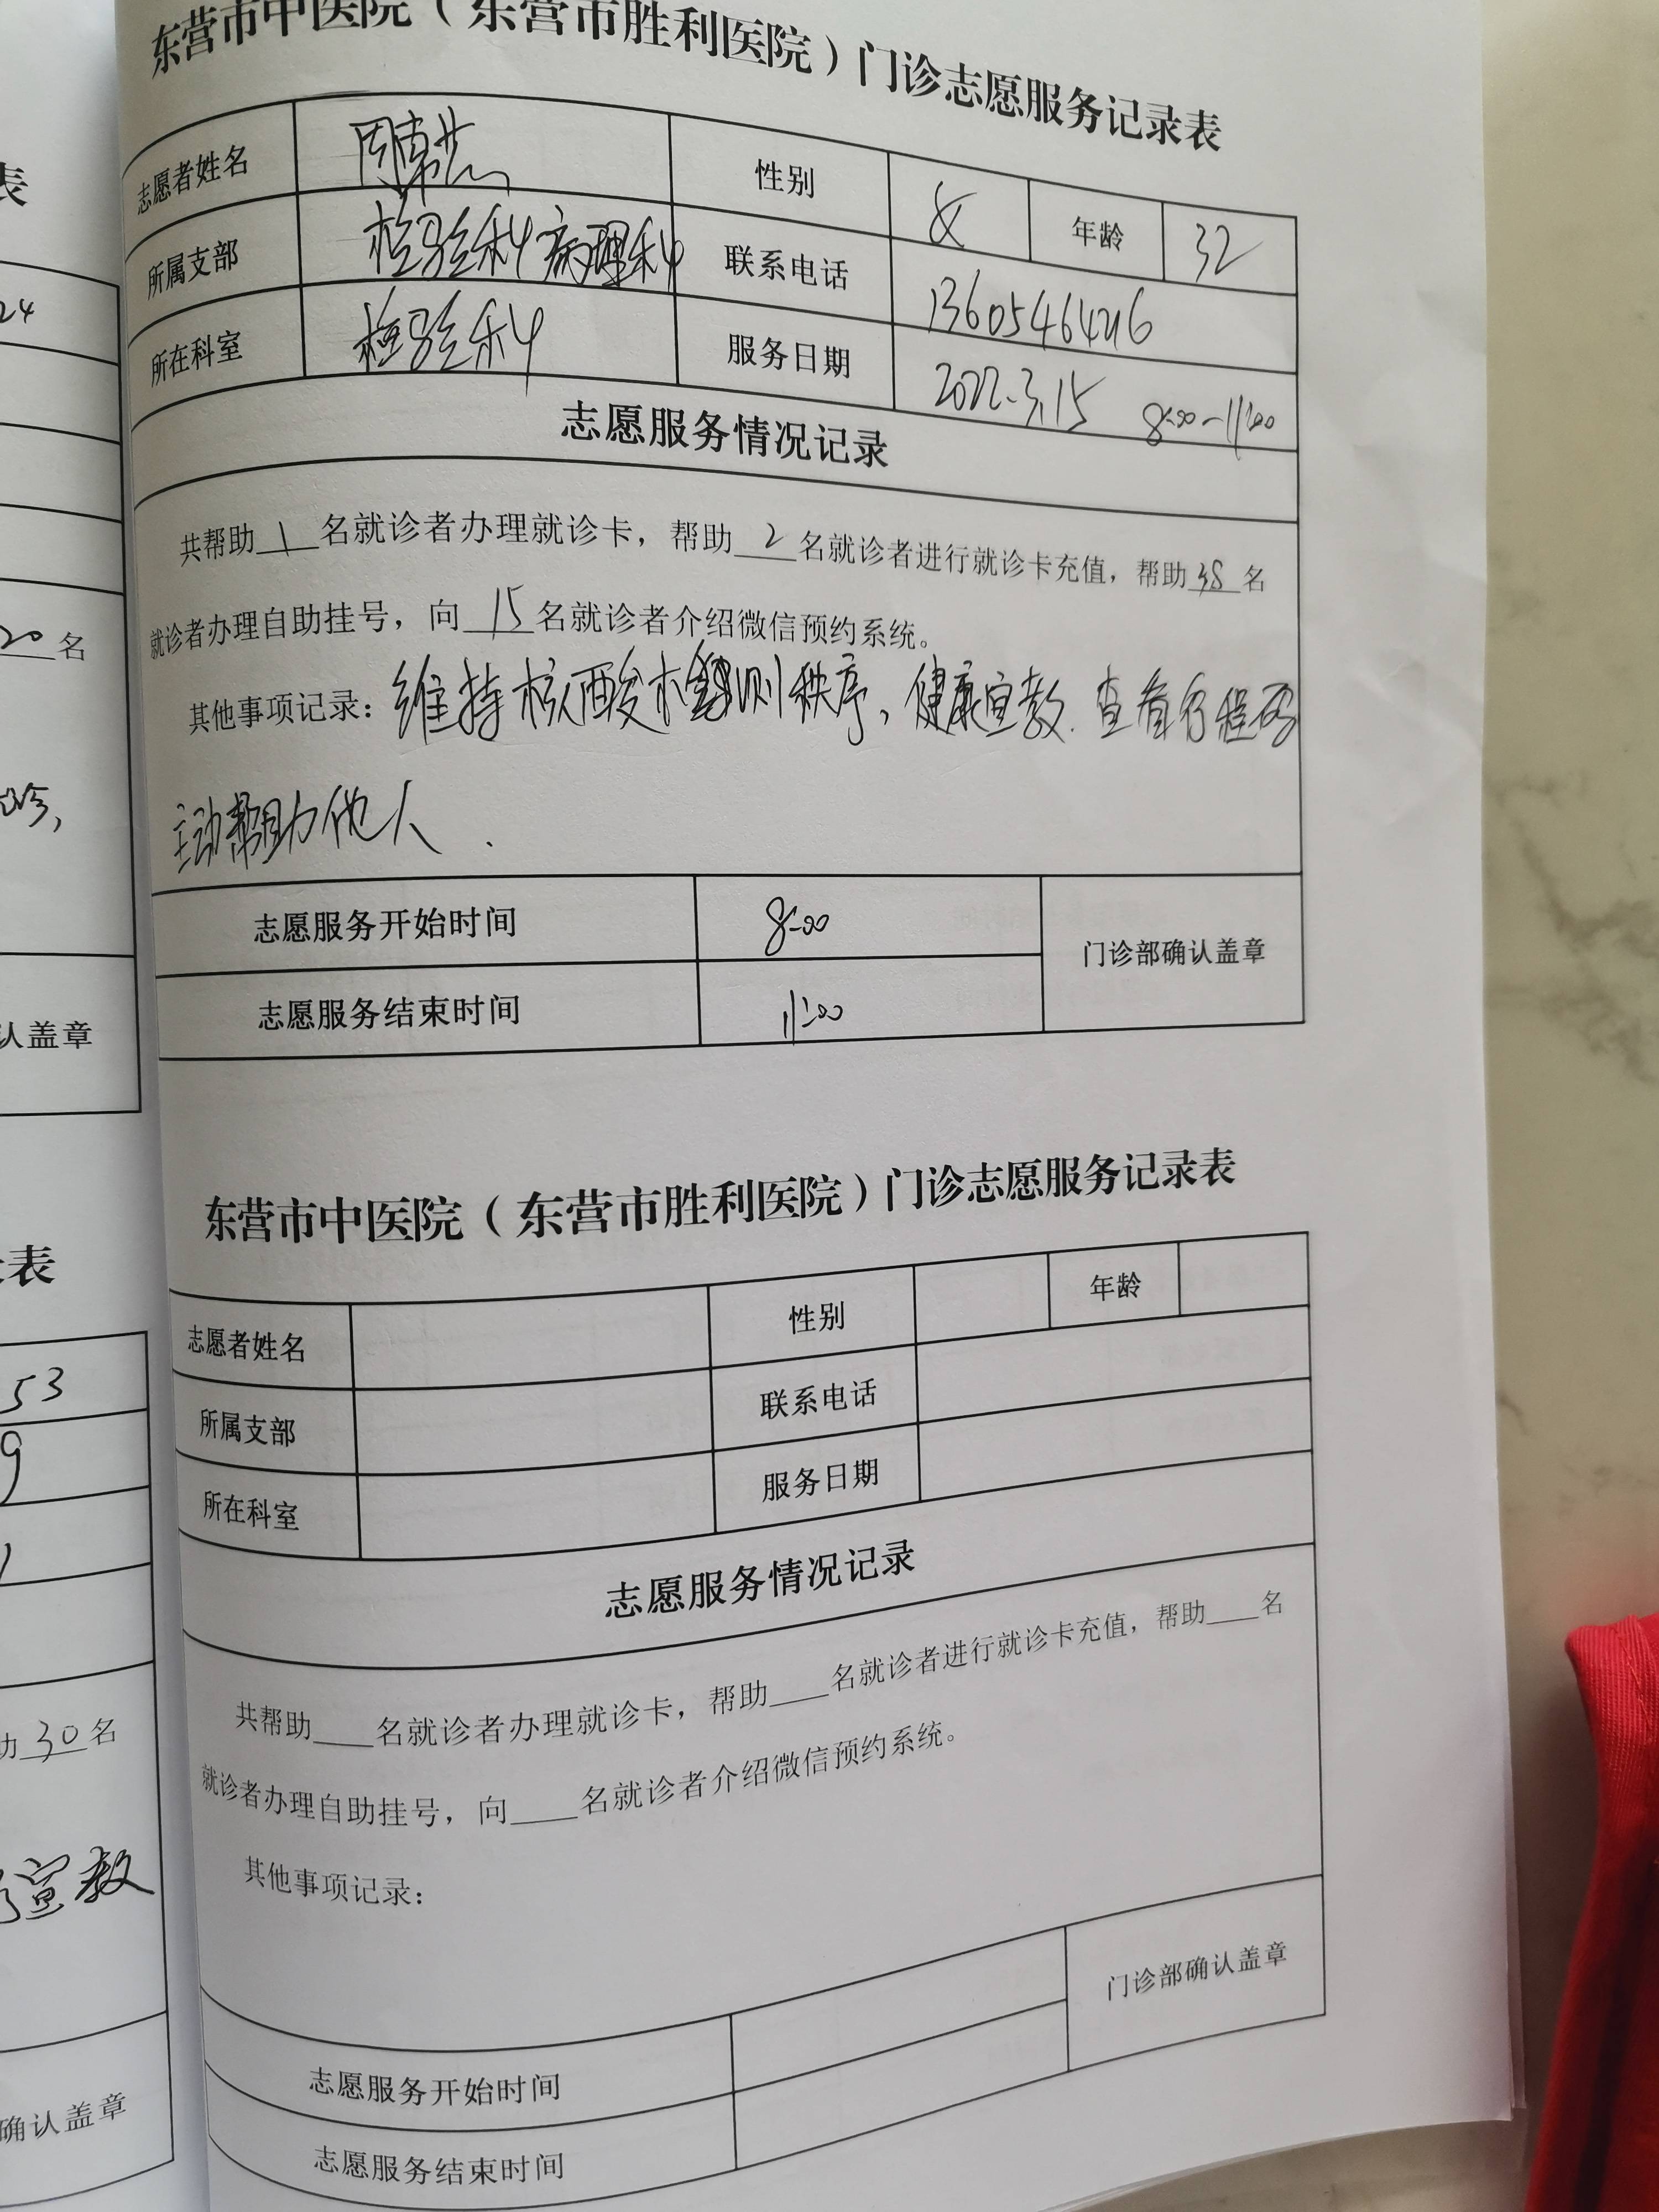 表
24
20 名
诊,
认盖章
录表
53
9
助 30 名
宣教
确认盖章
东营市中医院(东营市胜利医院)门诊志愿服务记录表
志愿者姓名 性别 女 年龄 32
所属支部 检验科病理科 联系电话
所在科室 检验科 服务日期 2022.3.15 8:00-11:00
志愿服务情况记录
共帮助 1 名就诊者办理就诊卡,帮助 2 名就诊者进行就诊卡充值,帮助 38 名
就诊者办理自助挂号,向 15 名就诊者介绍微信预约系统。
其他事项记录:维持核酸检测秩序,健康宣教.查看行程码
主动帮助他人.
志愿服务开始时间 8:00 门诊部确认盖章
志愿服务结束时间 11:00
东营市中医院(东营市胜利医院)门诊志愿服务记录表
志愿者姓名 性别 年龄
所属支部 联系电话
所在科室 服务日期
志愿服务情况记录
共帮助____名就诊者办理就诊卡,帮助____名就诊者进行就诊卡充值,帮助____名
就诊者办理自助挂号,向____名就诊者介绍微信预约系统。
其他事项记录:
志愿服务开始时间 门诊部确认盖章
志愿服务结束时间